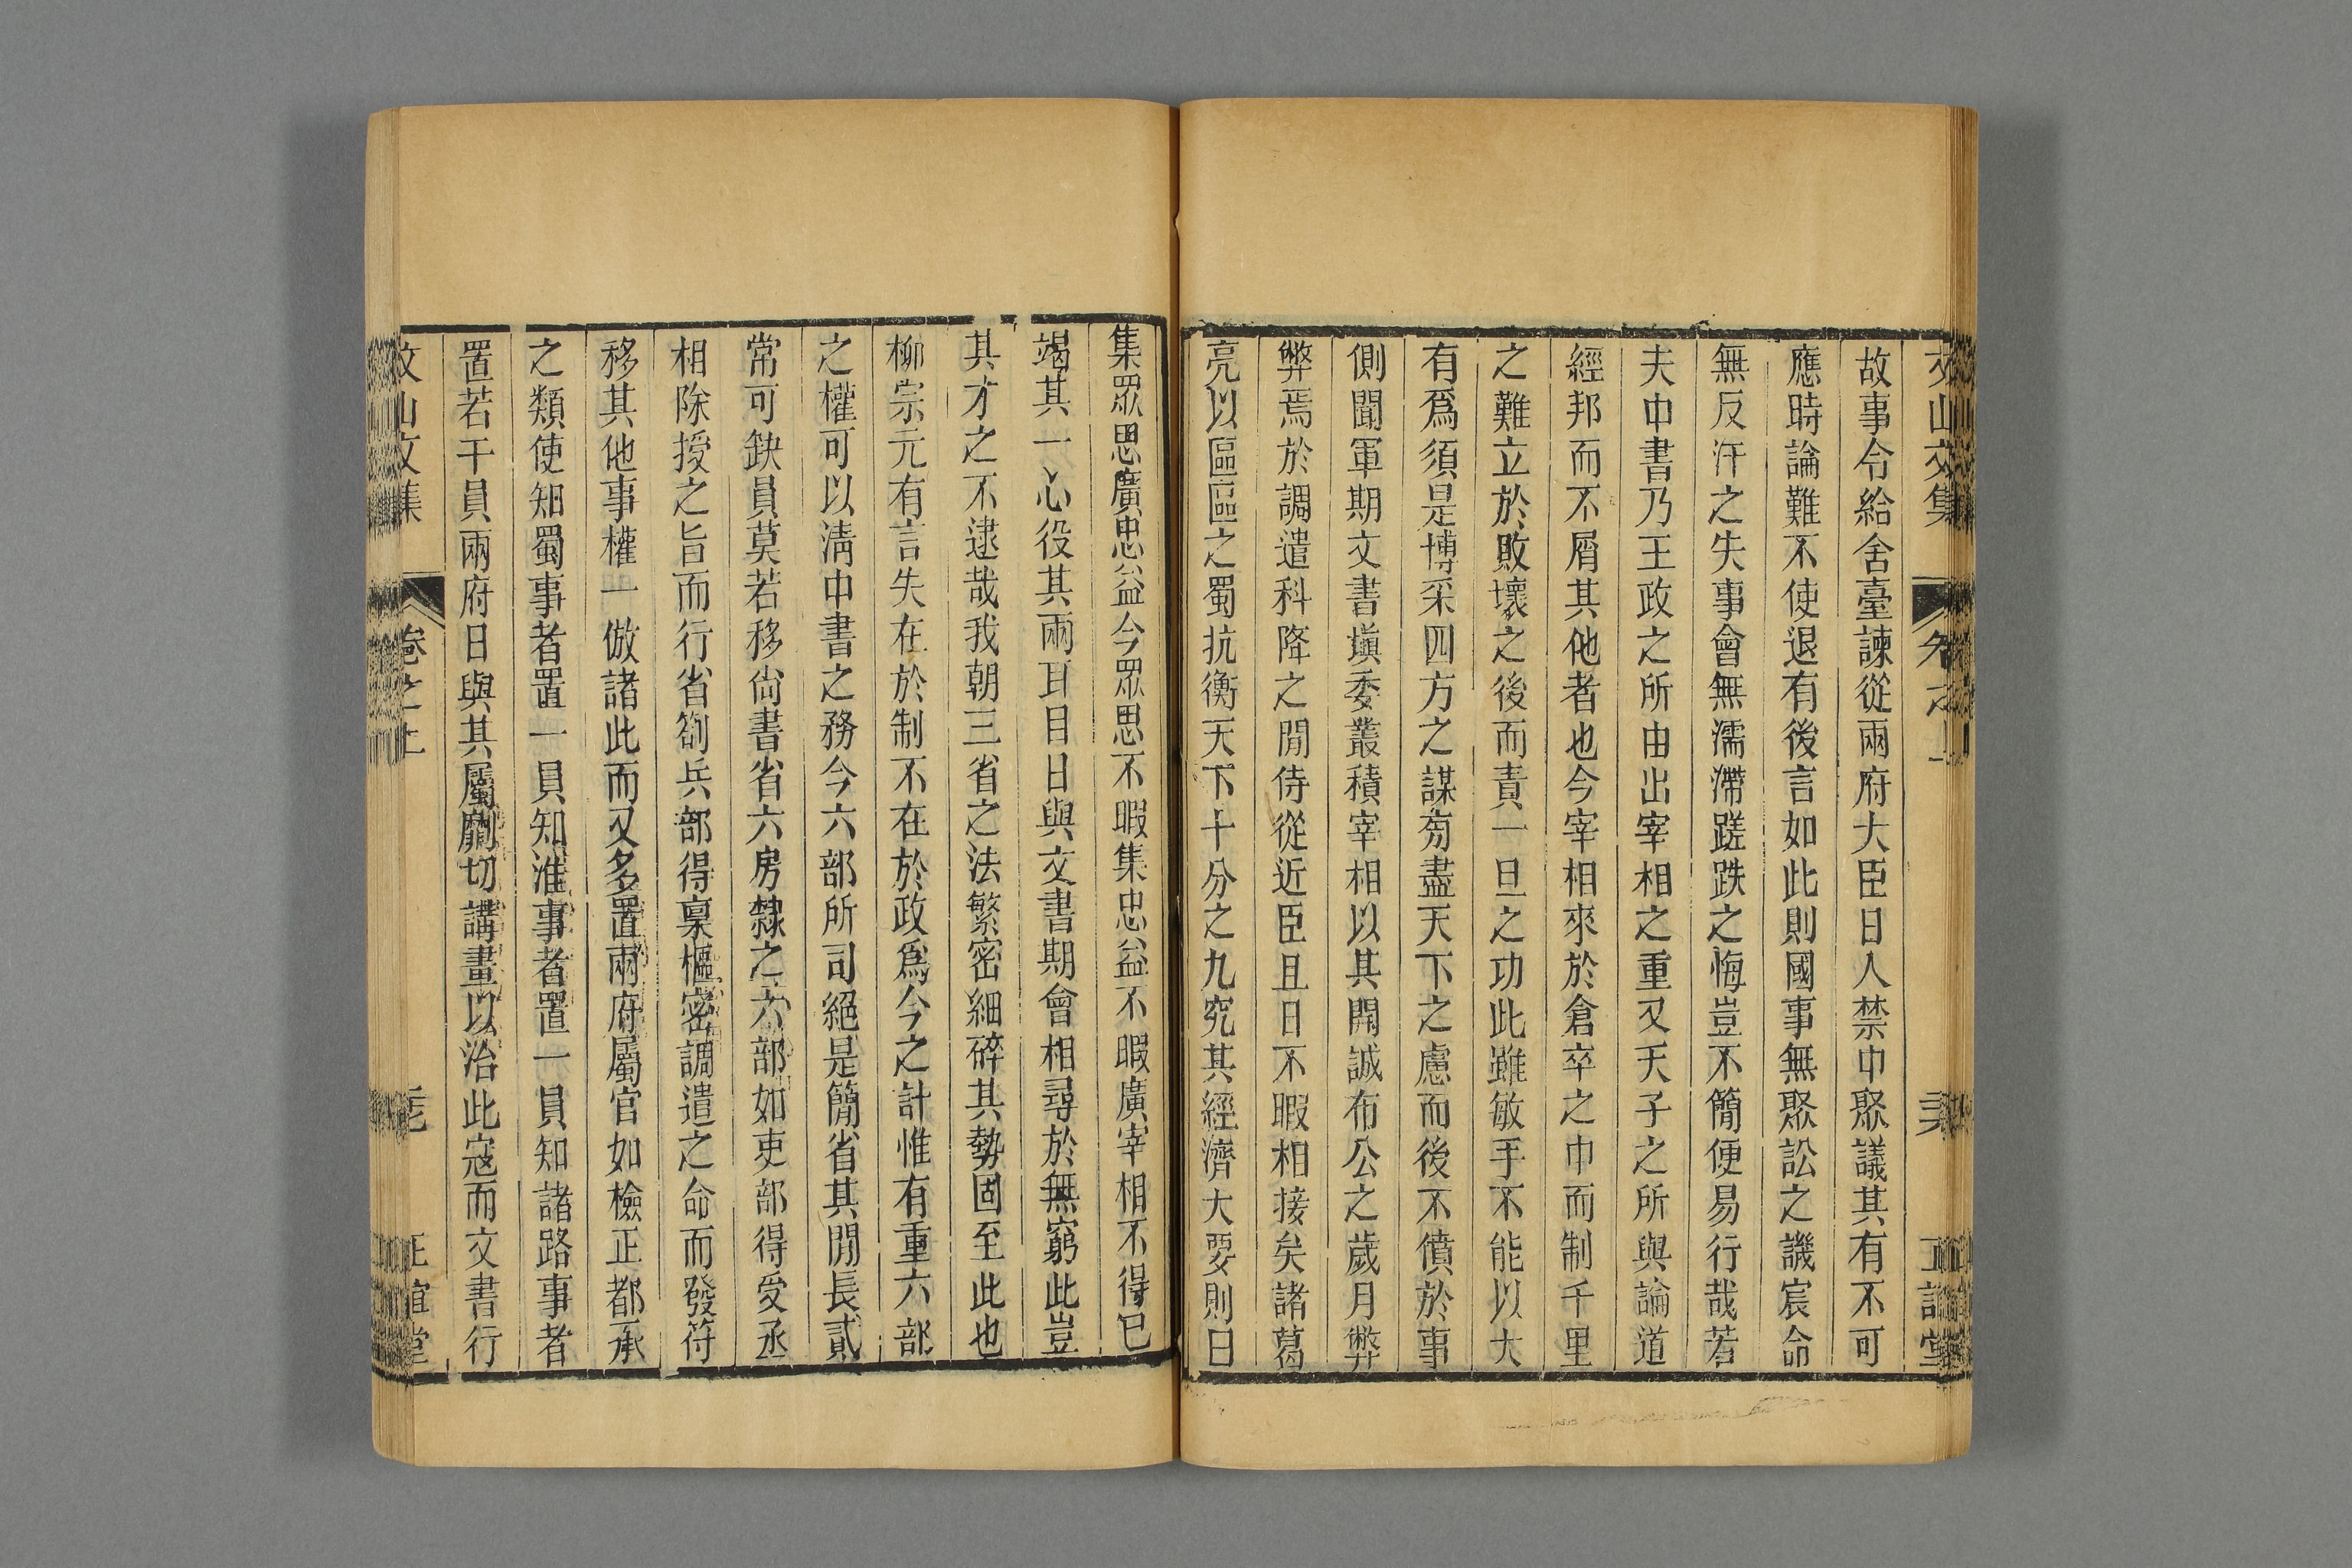 文山文集 卷之上 正誼堂
故事令給舍臺諫從兩府大臣日人禁中聚議其有不可
應時論難不使退有後言如此則國事無聚訟之譏宸命
無反汗之失事會無濡滯蹉跌之悔豈不簡便易行哉若
夫中書乃王政之所由出宰相之重又天子之所與論道
經邦而不屑其他者也今宰相來於倉卒之中而制千里
之難立於敗壞之後而責一旦之功此雖敏手不能以大
有爲須是博采四方之謀旁盡天下之慮而後不僨於事
側聞軍期文書塡委叢積宰相以其開誠布公之歲月弊
弊焉於調遣科降之閒侍從近臣且日不暇相接矣諸葛
亮以區區之蜀抗衡天下十分之九究其經濟大要則曰
集眾思廣忠益今眾思不暇集忠益不暇廣宰相不得已
竭其一心役其兩耳目日與文書期會相尋於無窮此豈
其才之不逮哉我朝三省之法繁密細碎其勢固至此也
柳宗元有言失在於制不在於政爲今之計惟有重六部
之權可以淸中書之務今六部所司絕是簡省其閒長貳
常可缺員莫若移尙書省六房隸之六部如吏部得受丞
相除授之旨而行省劄兵部得稟樞密調遣之命而發符
移其他事權一倣諸此而又多置兩府屬官如檢正都承
之類使知蜀事者置一員知淮事者置一員知諸路事者
置若干員兩府日與其屬劘切講畫以治此寇而文書行
文山文集 卷之上 正誼堂